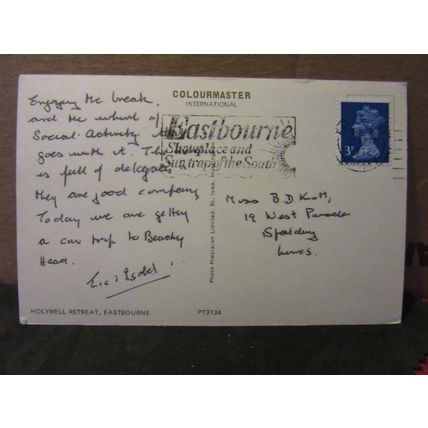 COLOURMASTER
INTERNATIONAL
Eastbourne
Showplace and
Sun trap of the South
3P
Enjoying the break,
and the whirl of
Social Activity
goes with it. The
is full of delegates
they are good company
Today we are getting
a car trip to Beachy
Head.
Eric & Isobel
Photo Precision Limited, St. Ives,
Miss B.D.
19 West Parade
Spalding
Lincs.
HOLYWELL RETREAT, EASTBOURNE
PT3134